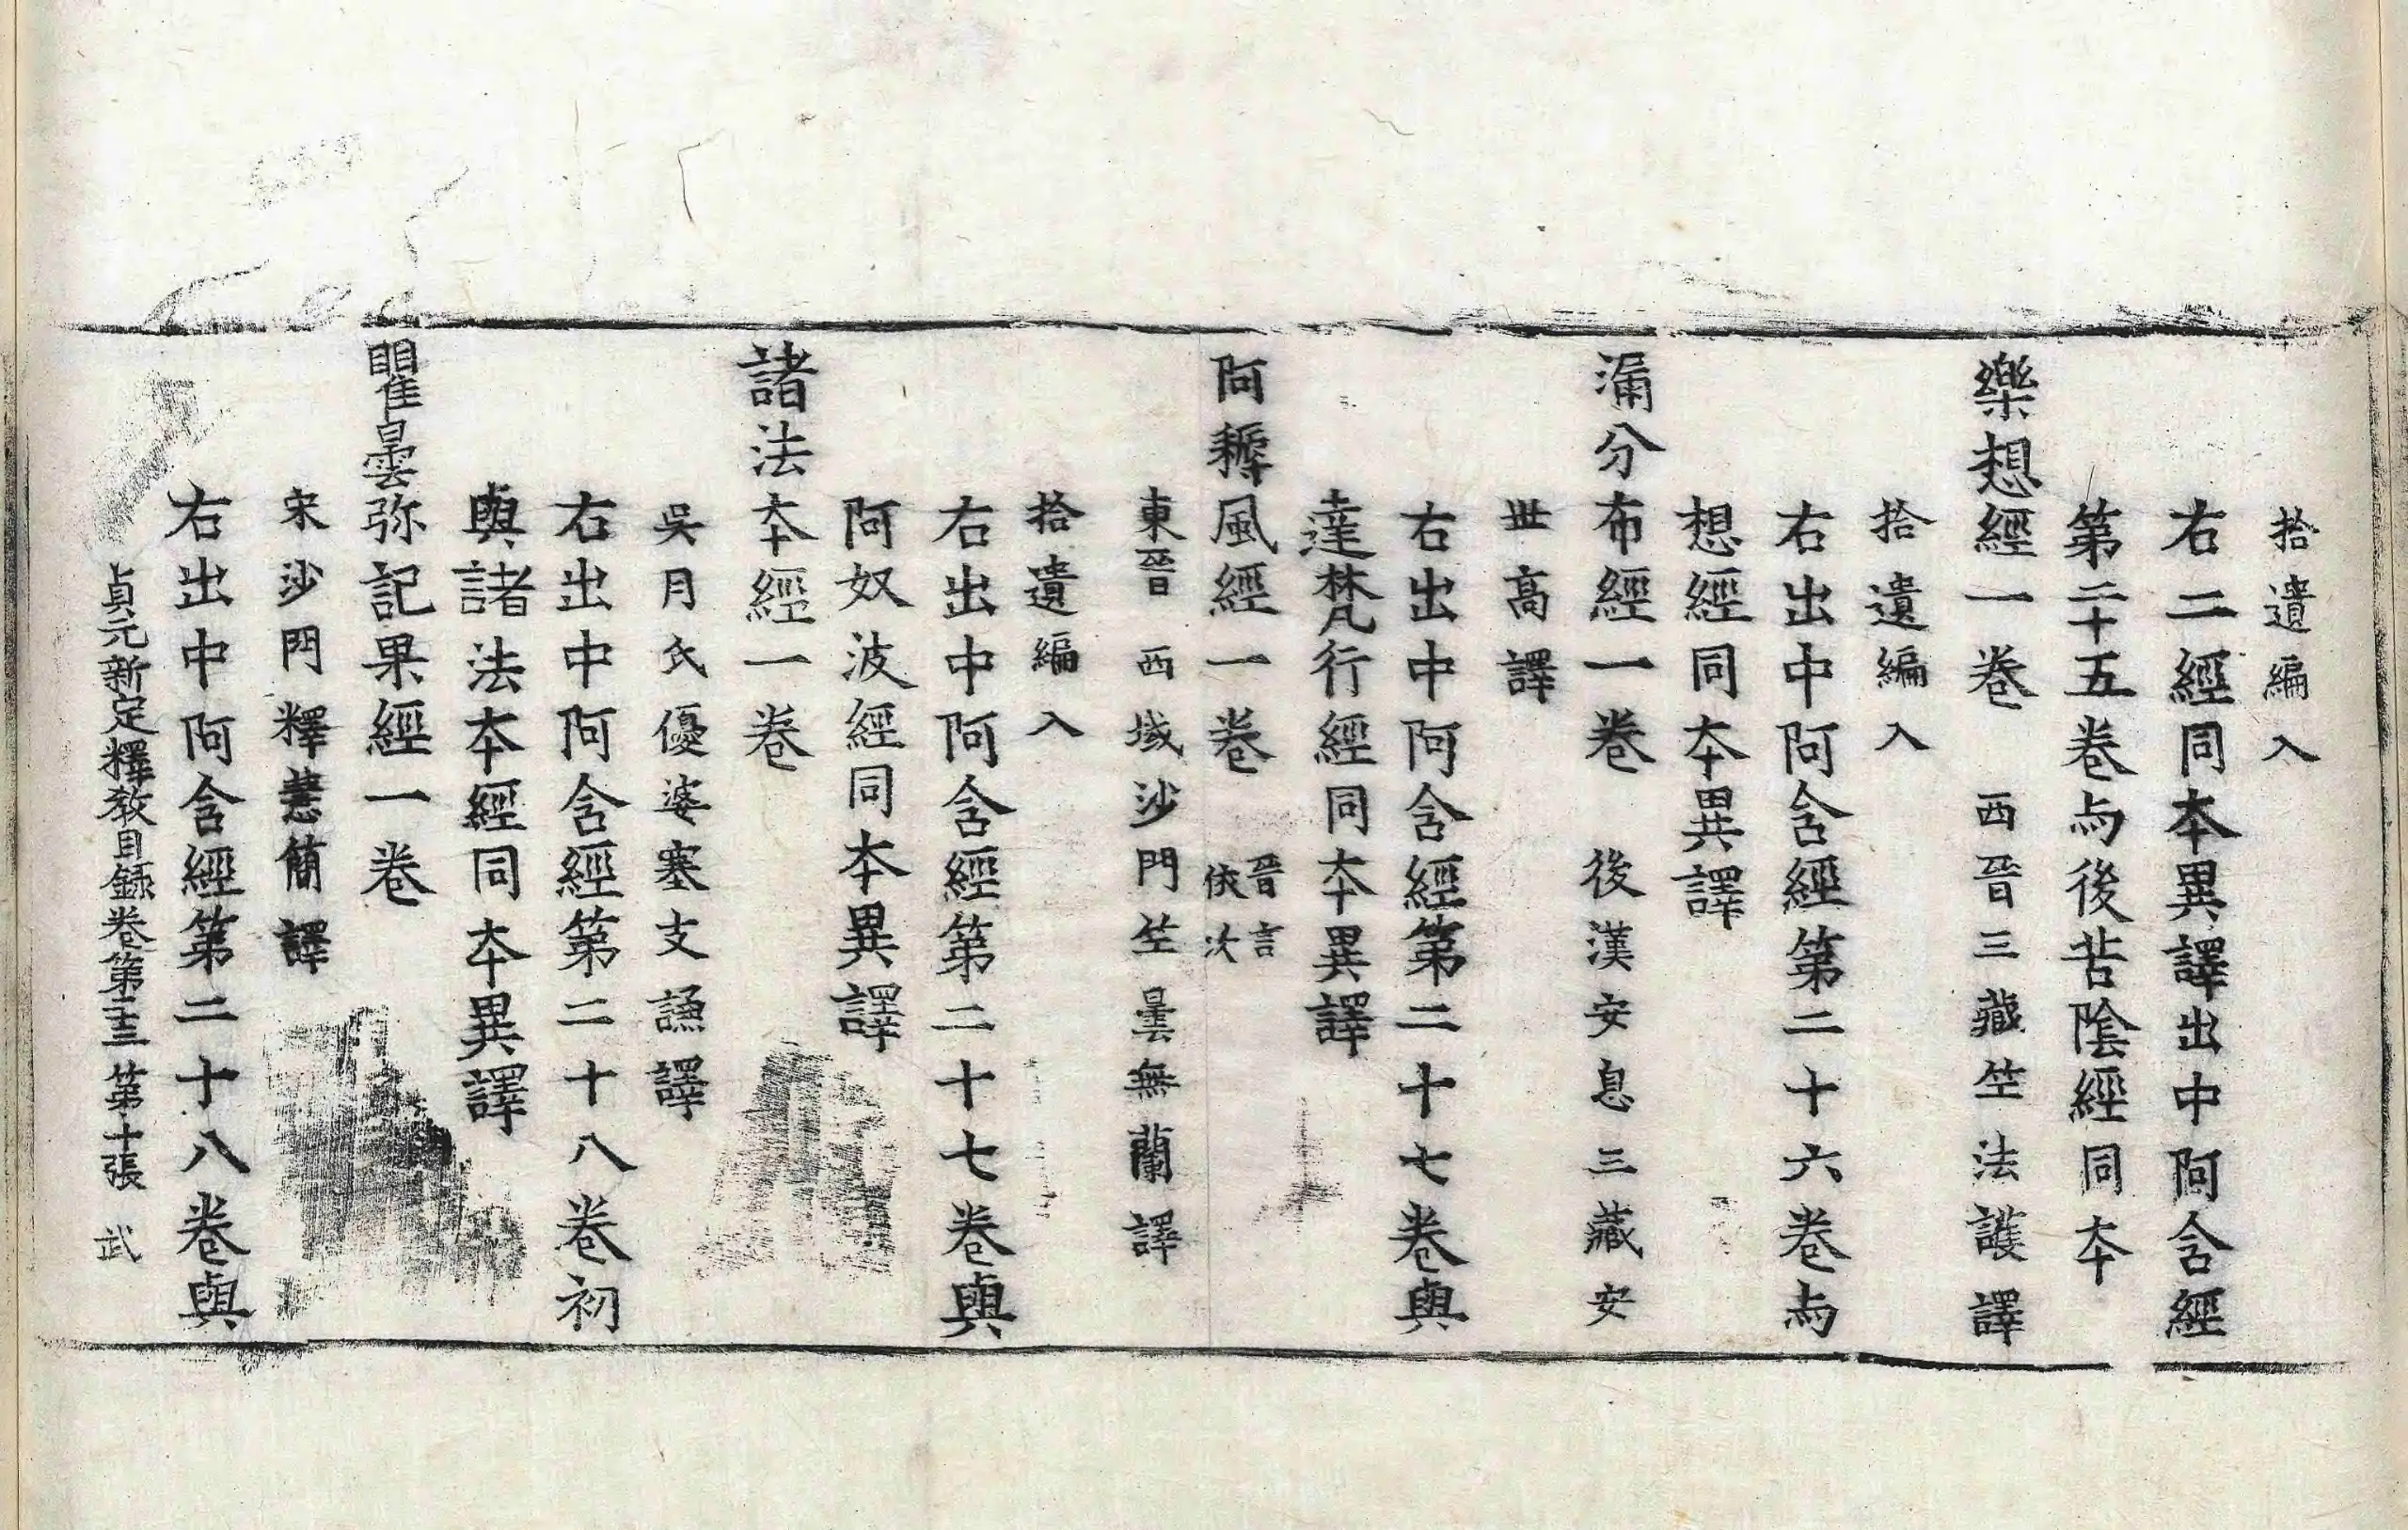 拾遺編入
右二經同本異譯出中阿含經
第二十五卷与後苦陰經同本
樂想經一卷 西晉三藏竺法護譯
拾遺編入
右出中阿含經第二十六卷与
想經同本異譯
漏分布經一卷 後漢安息三藏安
丗高譯
右出中阿含經第二十七卷與
達梵行經同本異譯
阿耨風經一卷 晉言依次
東晉西域沙門竺曇無蘭譯
拾遺編入
右出中阿含經第二十七卷與
阿奴波經同本異譯
諸法本經一卷
吳月氏優婆塞支謙譯
右出中阿含經第二十八卷初
與諸法本經同本異譯
瞿曇弥記果經一卷
宋沙門釋慧簡譯
右出中阿含經第二十八卷與
貞元新定釋教目録卷第二十三 第十張 武